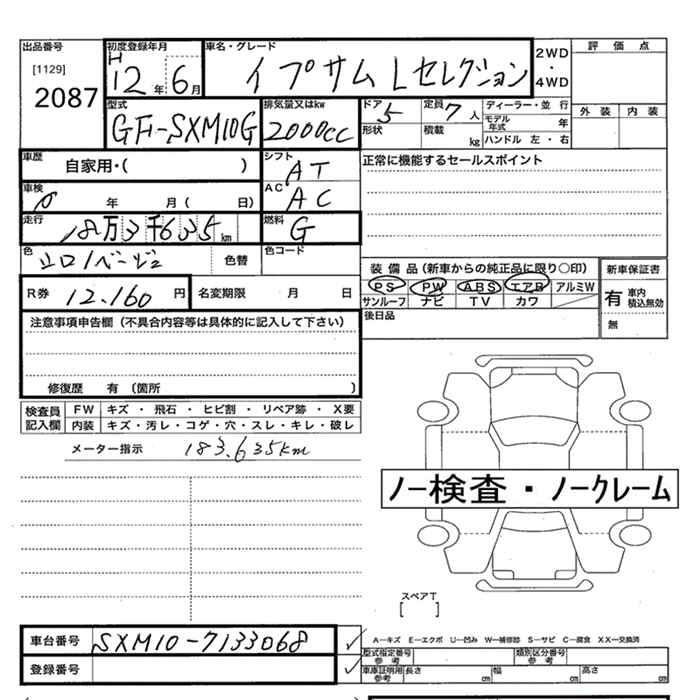 出品番号
[1129]
2087
初度登録年月
H
12年 6月
車名・グレード
イプサム Lセレクション
2WD
・
4WD
評価点
外装 内装
型式
GF-SXM10G
排気量又はkw
2000cc
ドア 5
形状
定員 7人
積載 kg
ディーラー・並行
モデル年式 年
ハンドル 左・右
車歴
自家用・( )
シフト
AT
正常に機能するセールスポイント
車検
年 月( 日)
AC
AC
走行
18万3千635km
燃料
G
色
シロ/ベージュ
色替
色コード
装備品(新車からの純正品に限り○印)
PS PW ABS エアB アルミW
サンルーフ ナビ TV カワ
新車保証書
有 車内積込無効
無
R券 12,160円
名変期限 月 日
後日品
注意事項申告欄(不具合内容等は具体的に記入して下さい)
修復歴 有 (箇所 )
検査員記入欄
FW キズ・飛石・ヒビ割・リペア跡・X要
内装 キズ・汚レ・コゲ・穴・スレ・キレ・破レ
メーター指示 183,635km
ノー検査・ノークレーム
スペアT
[ ]
車台番号 SXM10-7133068
登録番号
A―キズ E―エクボ U―凹み W―補修跡 S―サビ C―腐食 XX―交換済
型式指定番号 参考
類別区分番号 参考
車庫証明用 参考
長さ cm
幅 cm
高さ cm